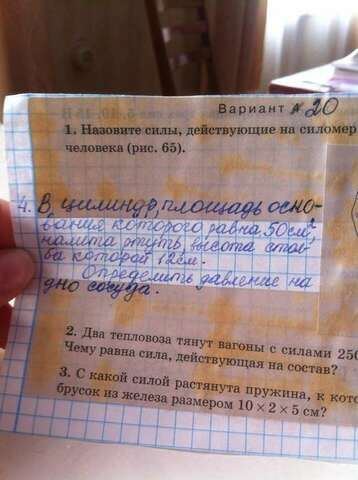 Вариант № 20
1. Назовите силы, действующие на силомер
человека (рис. 65).
4. В цилиндр, площадь осно-
вания которого равна 50 см²,
налита ртуть, высота стол-
ба которой 12 см.
Определить давление на
дно сосуда.
2. Два тепловоза тянут вагоны с силами 250
Чему равна сила, действующая на состав?
3. С какой силой растянута пружина, к кото
брусок из железа размером 10 × 2 × 5 см?